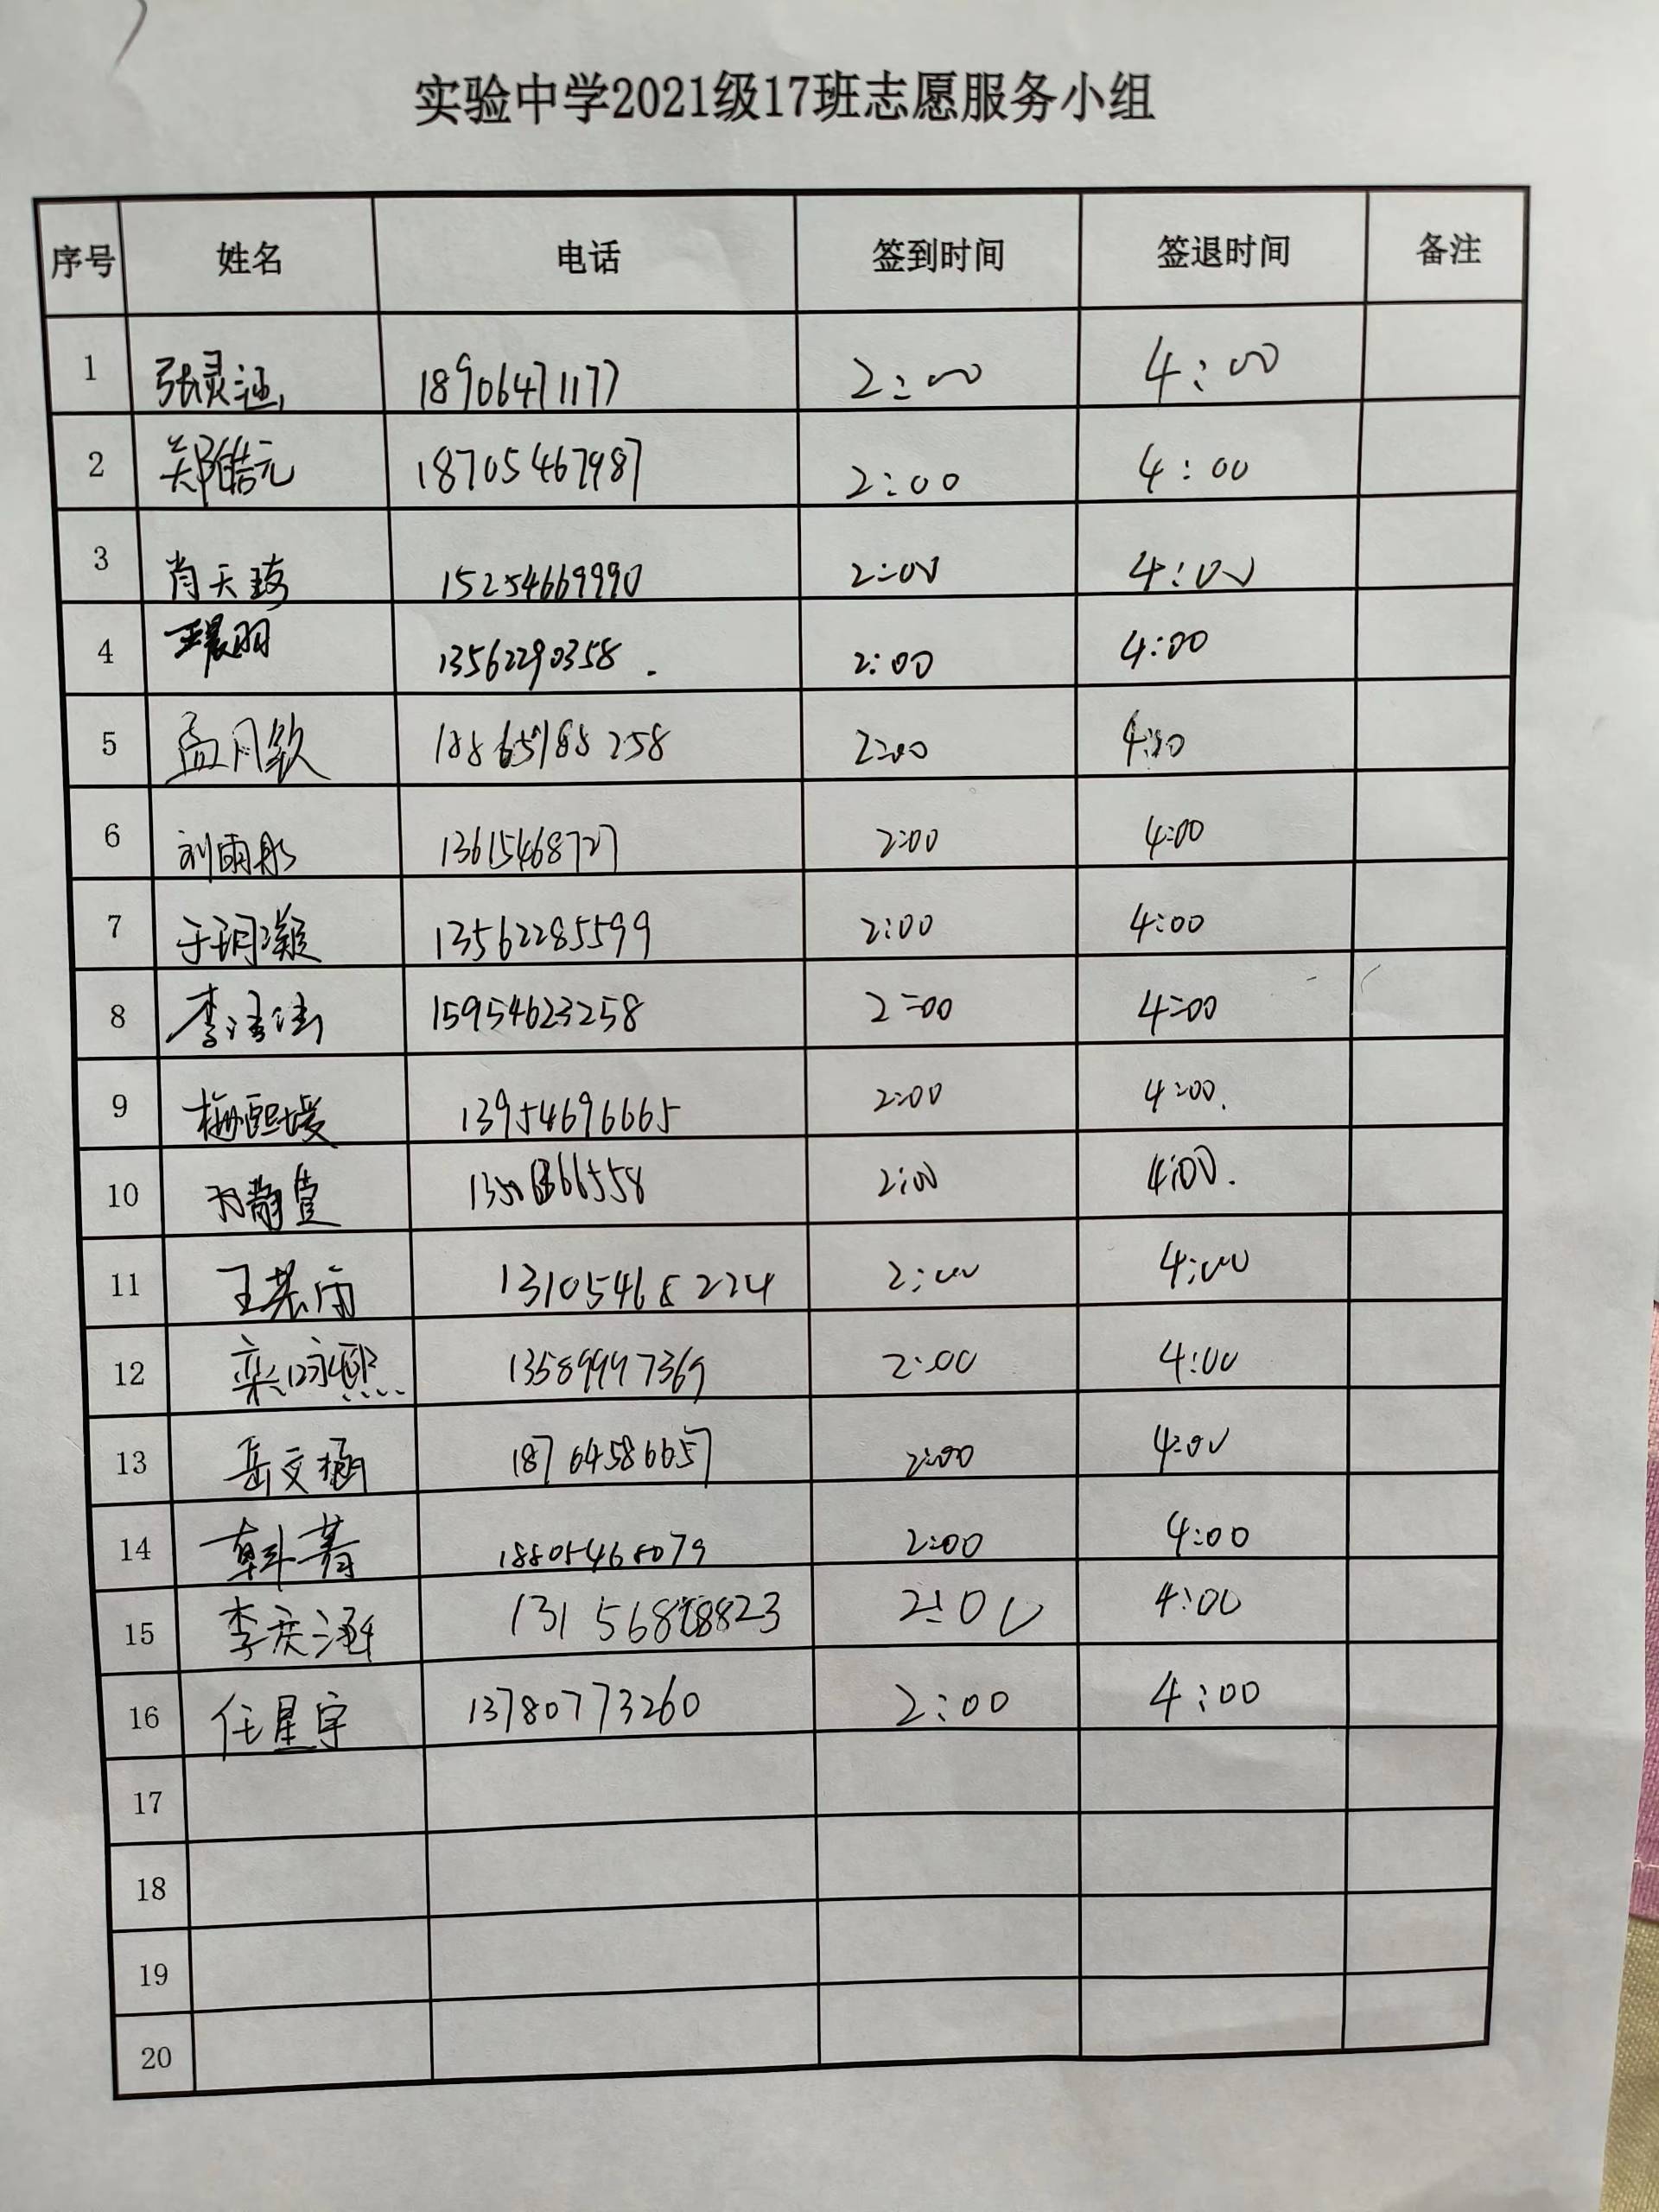 实验中学2021级17班志愿服务小组
序号 姓名 电话 签到时间 签退时间 备注
1 张灵涵 18906471177 2:00 4:00
2 郑皓元 18705467987 2:00 4:00
3 肖天琦 15254669990 2:00 4:00
4 王晨羽 13562290358. 2:00 4:00
5 孟凡钦 18865188258 2:00 4:00
6 刘雨彤 13615468727 2:00 4:00
7 于玥凝 13562285599 2:00 4:00
8 李洁洁 15954623258 2:00 4:00
9 梅熙媛 13954696665 2:00 4:00.
10 2:00 4:00.
11 2:00 4:00
12 栾咏熙 13589997369 2:00 4:00
13 岳文涵 18764586657 2:00 4:00
14 韩菁 18805468079 2:00 4:00
15 李庆涵 2:00 4:00
16 任星宇 13780773260 2:00 4:00
17
18
19
20